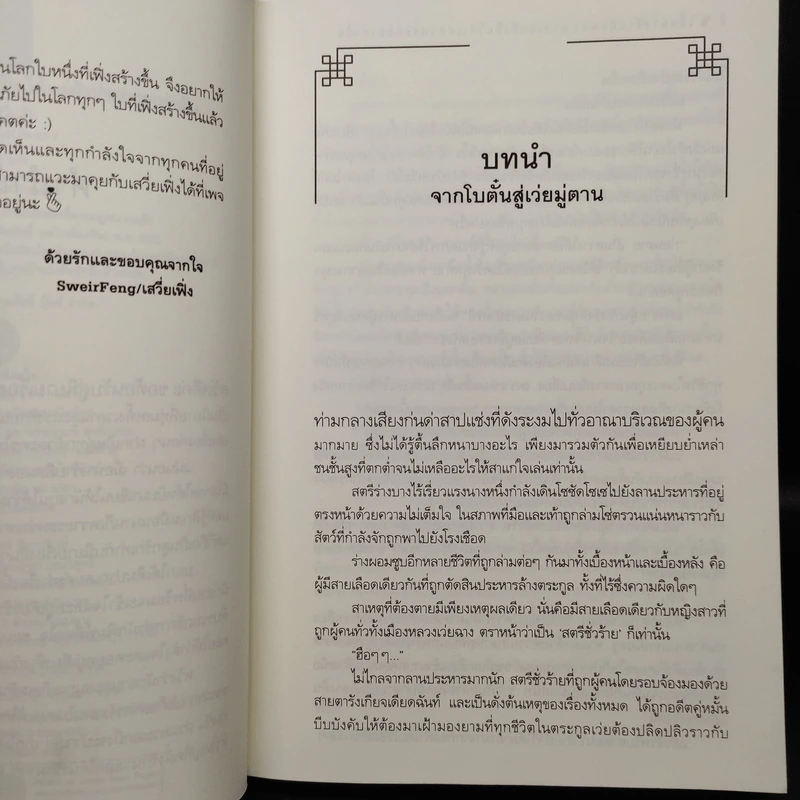 นโลกใบหนึ่งที่เฟิ่งสร้างขึ้น จึงอยากให้
ภัยไปในโลกทุกๆ ใบที่เฟิ่งสร้างขึ้นแล้ว
คตค่ะ :)
ดเห็นและทุกกำลังใจจากทุกคนที่อยู่
สามารถแวะมาคุยกับเสวี่ยเฟิ่งได้ที่เพจ
อยู่นะ
ด้วยรักและขอบคุณจากใจ
SweirFeng/เสวี่ยเฟิ่ง
บทนำ
จากโบตั๋นสู่เว่ยมู่ตาน
ท่ามกลางเสียงก่นด่าสาปแช่งที่ดังระงมไปทั่วอาณาบริเวณของผู้คน
มากมาย ซึ่งไม่ได้รู้ตื้นลึกหนาบางอะไร เพียงมารวมตัวกันเพื่อเหยียบย่ำเหล่า
ชนชั้นสูงที่ตกต่ำจนไม่เหลืออะไรให้สาแก่ใจเล่นเท่านั้น
สตรีร่างบางไร้เรี่ยวแรงนางหนึ่งกำลังเดินโซซัดโซเซไปยังลานประหารที่อยู่
ตรงหน้าด้วยความไม่เต็มใจ ในสภาพที่มือและเท้าถูกล่ามโซ่ตรวนแน่นหนาราวกับ
สัตว์ที่กำลังจักถูกพาไปยังโรงเชือด
ร่างผอมซูบอีกหลายชีวิตที่ถูกล่ามต่อๆ กันมาทั้งเบื้องหน้าและเบื้องหลัง คือ
ผู้มีสายเลือดเดียวกันที่ถูกตัดสินประหารล้างตระกูล ทั้งที่ไร้ซึ่งความผิดใดๆ
สาเหตุที่ต้องตายมีเพียงเหตุผลเดียว นั่นคือมีสายเลือดเดียวกับหญิงสาวที่
ถูกผู้คนทั่วทั้งเมืองหลวงเว่ยฉาง ตราหน้าว่าเป็น ‘สตรีชั่วร้าย’ ก็เท่านั้น
“ฮือๆๆ...”
ไม่ไกลจากลานประหารมากนัก สตรีชั่วร้ายที่ถูกผู้คนโดยรอบจ้องมองด้วย
สายตารังเกียจเดียดฉันท์ และเป็นดั่งต้นเหตุของเรื่องทั้งหมด ได้ถูกอดีตคู่หมั้น
บีบบังคับให้ต้องมาเฝ้ามองยามที่ทุกชีวิตในตระกูลเว่ยต้องปลิดปลิวราวกับ